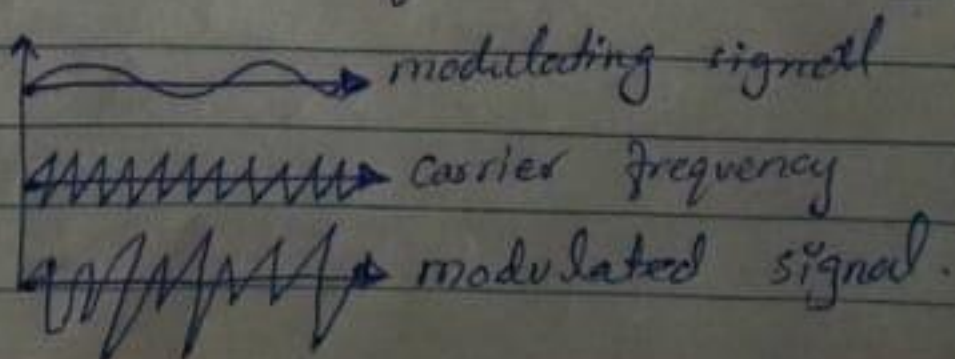 modulating signal
carrier frequency
modulated signal.